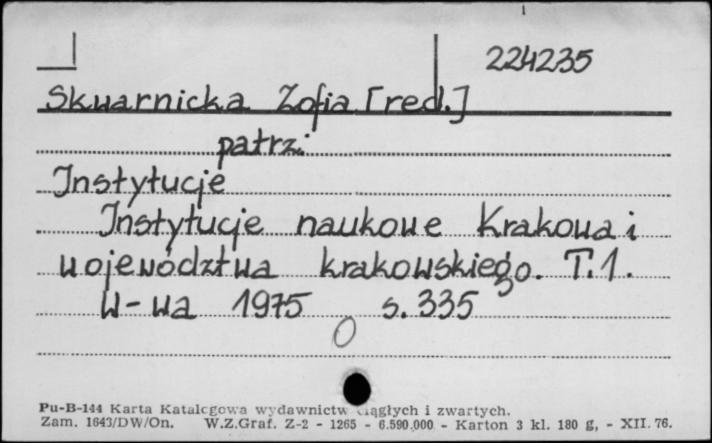 224235
Skwarnicka Zofia [red.]
patrz:
Instytucje
Instytucje naukowe Krakowa i
województwa krakowskiego. T.1.
W-wa 1975 s.335
0
Pu-B-144 Karta Katalogowa wydawnictw ciągłych i zwartych.
Zam. 1643/DW/On. W.Z.Graf. Z-2 - 1265 - 6.590.000 - Karton 3 kl. 180 g, - XII. 76.